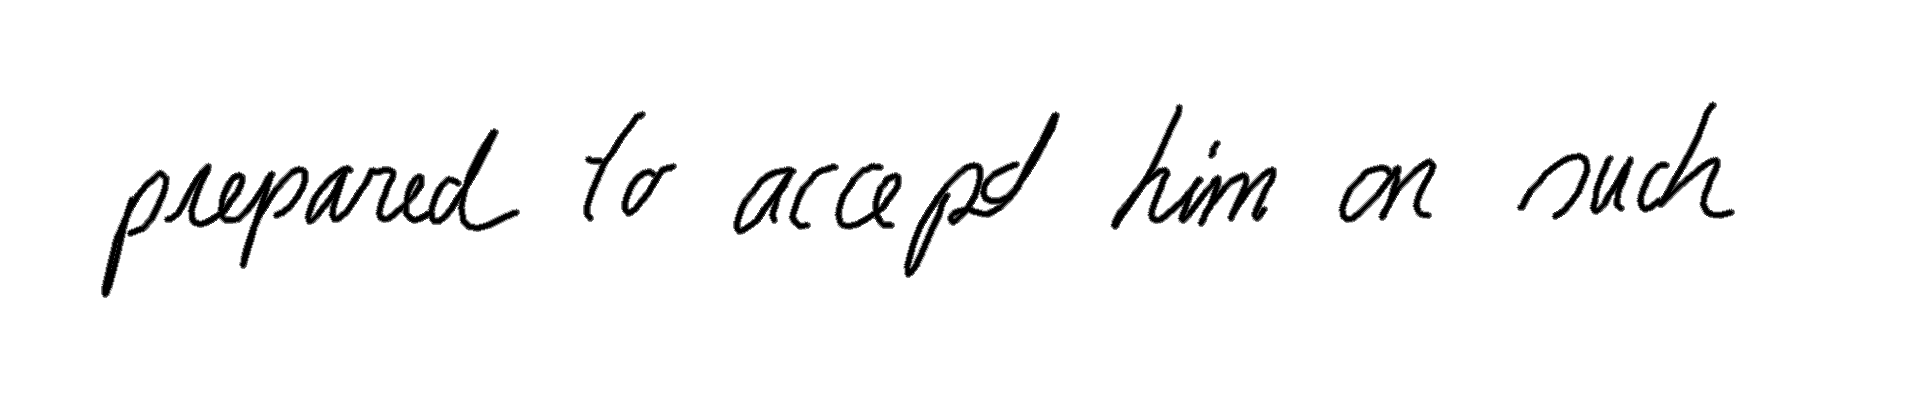 prepared to accept him on such